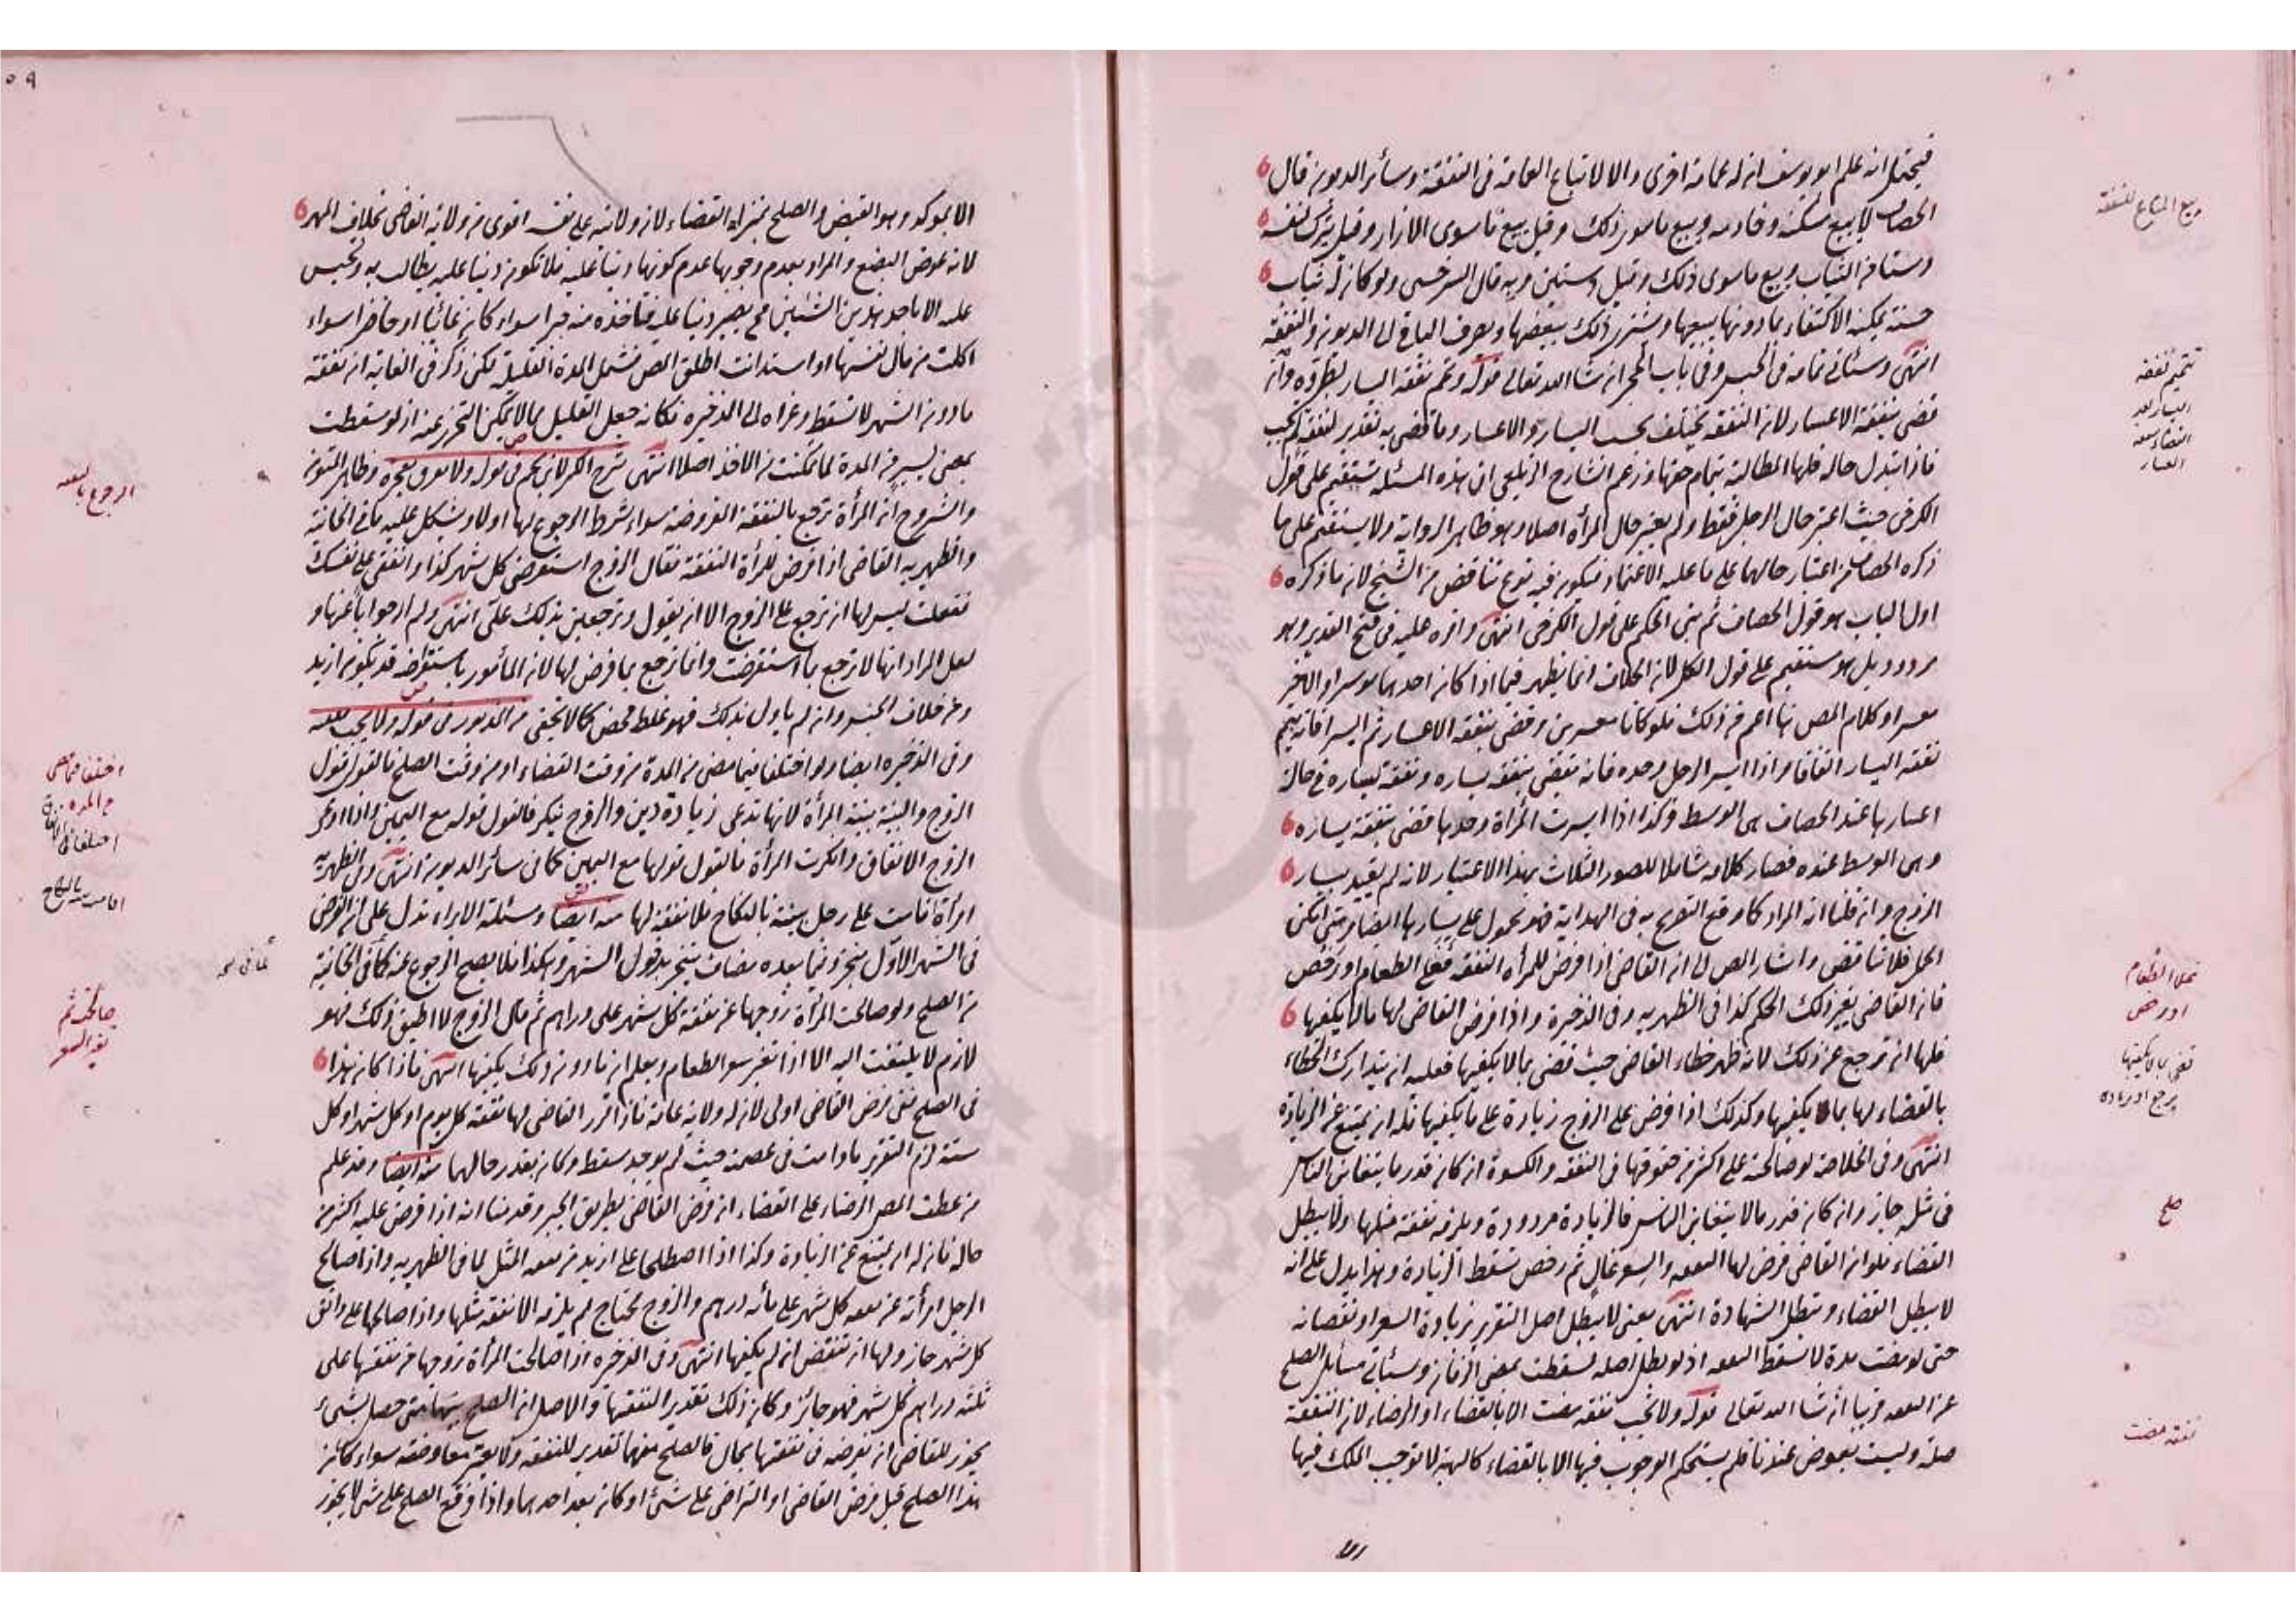 فيحتمل انه علم ابو يوسف ان له عمامة اخرى والا لا تباع العمامة فى النفقة وسائر الديون قال
الخصاف لا يبيع مسكنه وخادمه ويبيع ما سوى ذلك وقيل يبيع ما سوى الازار وقيل يترك لنفسه
دستا من الثياب ويبيع ما سوى ذلك وقيل دستين وبه قال السرخسى ولو كان له ثياب
حسنة يمكنه الاكتفاء بما دونها يبيعها ويشترى ذلك ببعضها ويصرف الباقى الى الديون والنفقة
انتهى وسيأتى تمامه فى الحبس وفى باب الحجر ان شا الله تعالى قوله وتمم نفقة اليسار بطروه وان
قضى بنفقة الاعسار لان النفقة تختلف بحسب اليسار والاعسار وما قضى به تقدير لنفقة لم تجب
فاذا تبدل حاله فلها المطالبة بتمام حقها وزعم الشارح الزيلعى ان هذه المسئلة تستقيم على قول
الكرخى حيث اعتبر حال الرجل فقط ولم يعتبر حال المرأة اصلا وهو ظاهر الرواية ولا يستقيم على ما
ذكره الخصاف من اعتبار حالهما على ما عليه الاعتماد فيكون فيه نوع تناقض من الشيخ لان ما ذكره
اول الباب هو قول الخصاف ثم بنى الحكم على قول الكرخى انتهى واقره عليه فى فتح القدير وهو
مردود بل هو مستقيم على قول الكل لان الخلاف انما يظهر فيما اذا كان احدهما موسرا والاخر
معسرا وكلام المص هنا اعم من ذلك فلو كانا معسرين وقضى بنفقة الاعسار ثم ايسرا فانه يتمم
نفقة اليسار اتفاقا واذا ايسر الرجل وحده فانه يقضى بنفقة يساره ونفقة يساره فى حالة
اعسارها عند الخصاف هى الوسط وكذا اذا ايسرت المرأة وحدها قضى بنفقة يساره
وهى الوسط عنده فصار كلامه شاملا للصور الثلاث بهذا الاعتبار لانه لم يقيد بيسار
الزوج وان قلنا انه المراد كما وقع التصريح به فى الهداية فهو محمول على يسارها ايضا ومتى امكن
الحمل فلا تناقض واشار المص الى ان القاضى اذا فرض للمرأة النفقة فغلى الطعام او رخص
فان القاضى يغير ذلك الحكم كذا فى الظهيرية وفى الذخيرة واذا فرض القاضى لها مالا يكفيها
فلها ان ترجع عن ذلك لانه ظهر خطاء القاضى حيث قضى بما لا يكفيها فعليه ان يتدارك الخطاء
بالقضاء لها بما يكفيها وكذلك اذا فرض على الزوج زيادة على ما يكفيها فله ان يمتنع عن الزيادة
انتهى وفى الخلاصة لو صالحته على اكثر من حقوقها فى النفقة والكسوة ان كان قدر ما يتغابن الناس
فى مثله جاز وان كان قدر مالا يتغابن الناس فالزيادة مردودة ويلزمه نفقة مثلها ولا يبطل
القضاء فلو ان القاضى فرض لها النفقه والسعر غال ثم رخص تسقط الزيادة وهذا يدل على انه
لا يبطل القضاء وتبطل الشهادة انتهى يعنى لا يبطل اصل التقرير بزيادة السعر او نقصانه
حتى لو مضت مدة لا تسقط النفقه اذ لو بطل اصله لسقطت بمضى الزمان وسيأتى مسائل الصلح
عن النفقه قريبا ان شا الله تعالى قوله ولا تجب نفقة مضت الا بالقضاء او الرضاء لان النفقة
صلة وليست بعوض عندنا فلم يستحكم الوجوب فيها الا بالقضاء كالهبة لا توجب الملك فيها
الا
بيع المتاع للنفقة
تتميم نفقة
اليسار بعد
القضاء بنفقه
العسار
غلا الطعام
او رخص
قضى بما لا يكفيها
يرجع او زياده
صلح
نفقة مضت
الا بمؤكد وهو القبض والصلح بمنزلة القضاء لان ولايته على نفسه اقوى من ولاية القاضى بخلاف المهر
لانه عوض البضع والمراد بعدم وجوبها عدم كونها دينا عليه فلا تكون دينا عليه يطالب به ويحبس
عليه الا باحد هذين الشيئين فح يصير دينا عليه فتاخذه منه جبرا سواء كان غائبا او حاضرا سواء
اكلت من مال نفسها او استدانت اطلق المص فشمل المدة القليلة لكن ذكر فى الغاية ان نفقة
ما دون الشهر لا تسقط وعزاه الى الذخيرة فكانه جعل القليل مما لا يمكن التحرز عنه اذ لو سقطت
بمضى يسير من المدة لما تمكنت من الاخذ اصلا انتهى شرح الكنز لابن نجيم فى قوله ولا يفرق بعجزه وظاهر المتون
والشروح ان المرأة ترجع بالنفقة المفروضة سواء شرط الرجوع لها اولا ويشكل عليه ما فى الخانية
والظهيريه القاضى اذا فرض للمرأة النفقة فقال الزوج استقرضى كل شهر كذا وانفقى على نفسك
ففعلت ليس لها ان ترجع على الزوج الا ان يقول وترجعين بذلك على انتهى ولم ار جوابا عنها و
لعل المراد انها لا ترجع بما استقرضت وانما ترجع بما فرض لها لان المأمور باستقراضه قد يكون ازيد
وعن خلاف الجنس وان لم ياول بذلك فهو غلط محض كما لا يخفى من المذبور فى قوله ولا يجب نفقه
وفى الذخيره ايضا ولو اختلفا فيما مضى من المدة من وقت القضاء او من وقت الصلح فالقول قول
الزوج والبينة بينة المرأة لانها تدعى زيادة دين والزوج ينكر فالقول قوله مع اليمين واذا ادعى
الزوج الانفاق وانكرت المرأة فالقول قولها مع اليمين كما فى سائر الديون انتهى وفى الظهيرية
امرأة اقامت على رجل بينة بالنكاح فلا نفقة لها منه ايضا ومسئلة الابراء تدل على ان الفرض
فى الشهر الاول منجز وفيما بعده مضاف يتنجز بدخول الشهر وهكذا فلا يصح الرجوع عنه كما فى الخانية
من الصلح ولو صالحت المرأة زوجها عن نفقة كل شهر على دراهم ثم قال الزوج لا اطيق ذلك فهو
لازم لا يلتفت اليه الا اذا تغير سعر الطعام ويعلم ان ما دون ذلك يكفيها انتهى فاذا كان هذا
فى الصلح ففى فرض القاضى اولى لان له ولاية عامة فاذا قرر القاضى لها نفقة كل يوم او كل شهر او كل
سنة لزم التقرير ما دامت فى عصمته حيث لم يوجد مسقط وكان بقدر حالهما منه ايضا وقد علم
من عطف المص الرضاء على القضاء ان فرض القاضى بطريق الجبر وقدمنا انه اذا فرض عليه اكثر من
حاله فان له ان يمتنع عن الزيادة وكذا اذا اصطلحا على ازيد من نفقه المثل لما فى الظهيريه واذا صالح
الرجل امرأته عن نفقه كل شهر على مائه درهم والزوج محتاج لم يلزمه الا نفقة مثلها واذا صالحها على دانق
كل شهر جاز ولها ان تنتقض ان لم يكفيها انتهى وفى الذخيره اذا صالحت المرأة زوجها من نفقتها على
ثلثة دراهم كل شهر فهو جائز وكان ذلك تقدير النفقتها والاصل ان الصلح بينهما متى حصل بشئ
يجوز للقاضى ان يفرضه فى نفقتها بحال فالصلح منهما تقدير للنفقة ولا يعتبر معاوضة سواء كان
هذا الصلح قبل فرض القاضى او التراضى على شئ او كان بعد احدهما واذا وقع الصلح على شئ لا يجوز
الرجوع بالنفقه
اختلفا فيما مضى
اقامت بينه بالنكاح
صالحت ثم
تغير السعر